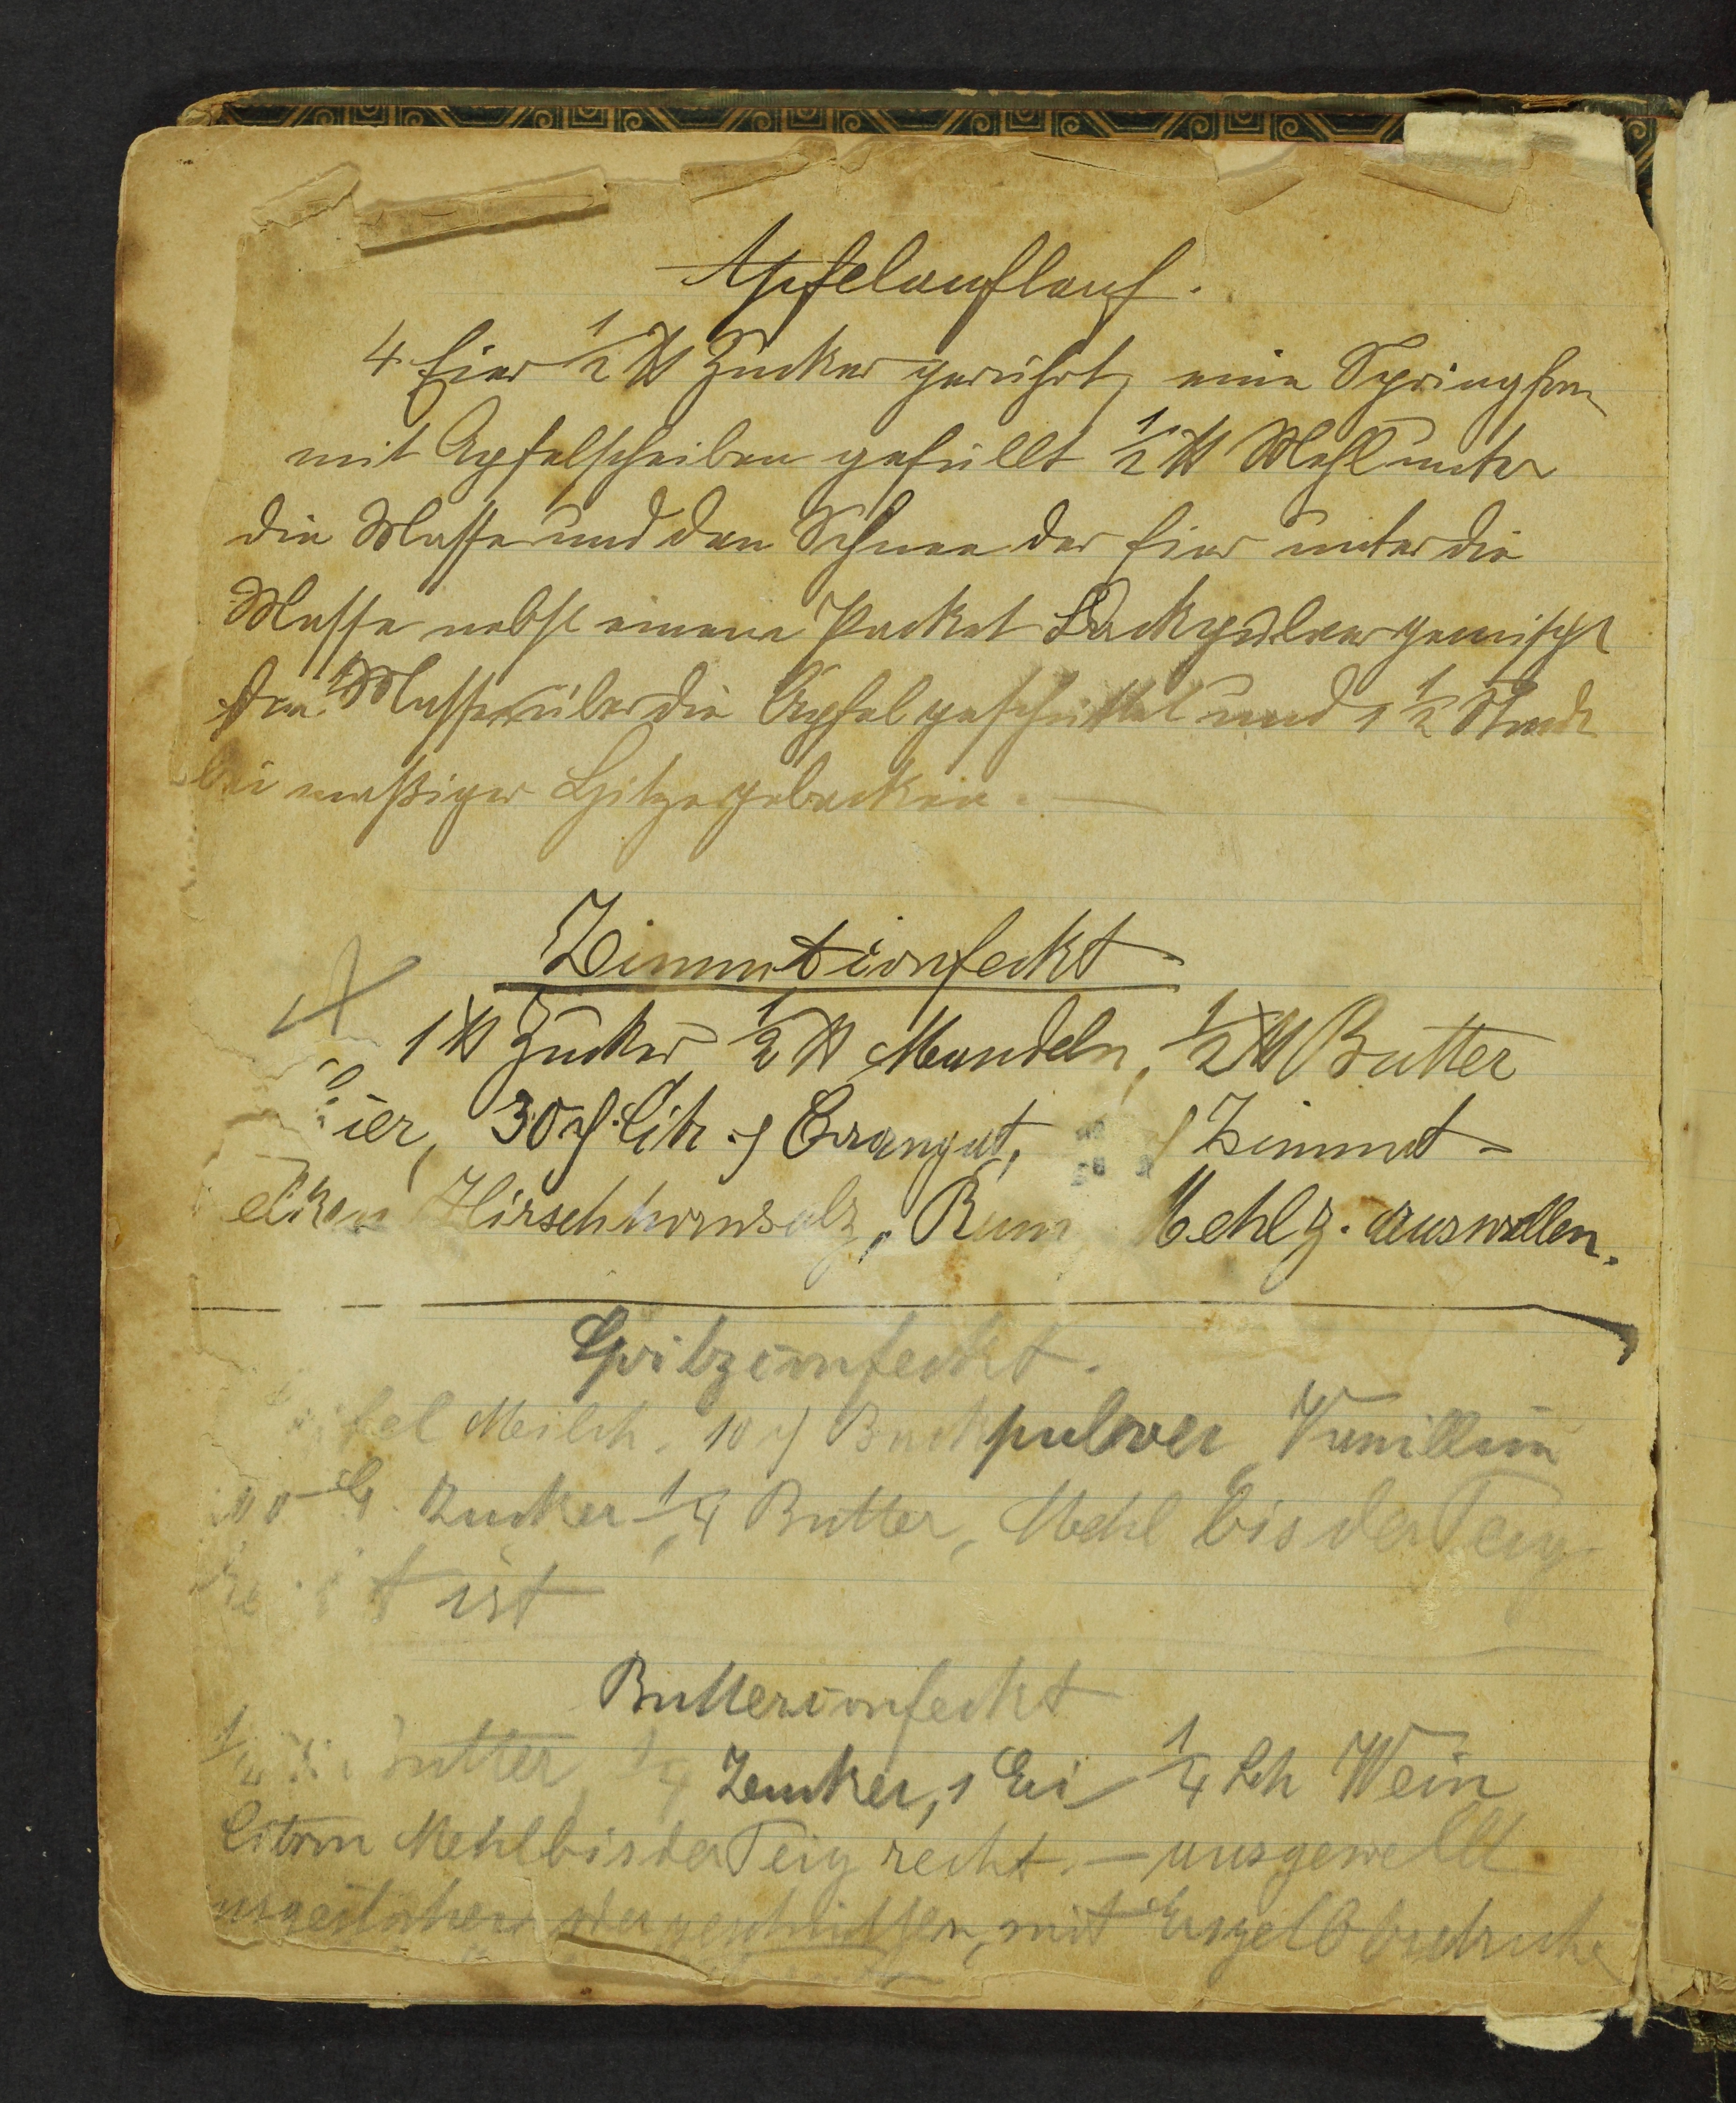 Apfelauflauf.
4 Eier 1/2 ℔ Zucker gerührt, eine Springform
mit Apfelscheiben gefüllt 1/2 ℔ Mehl unter
die Masse und den Schnee der Eier unter die
Masse nebst einem Packet Backpulver gemischt
Masse über die Äpfel geschüttet und 1 1/2 Stunde
bei mäßiger Hitze gebacken. —
Zimmtconfeckt
1 ℔ Zucker 1/2 ℔ Mandeln, 1/2 ℔ Butter
ier, 30 Citr. Orangat, Zimmt
elken Hirschhornsalz, Rum Mehl z. auswellen.
Spritzconfeckt.
fel Milch, 10 Backpulver, Vanillin
Zucker 1/4 Butter, Mehl bis der Teig
t ist
Butterconfeckt
utter, 1/4 Zucker, 1 Ei 1/4 Wein
Citron Mehl bis der Teig recht. — ausgewellt
oder geschnitten, mit Eigelb